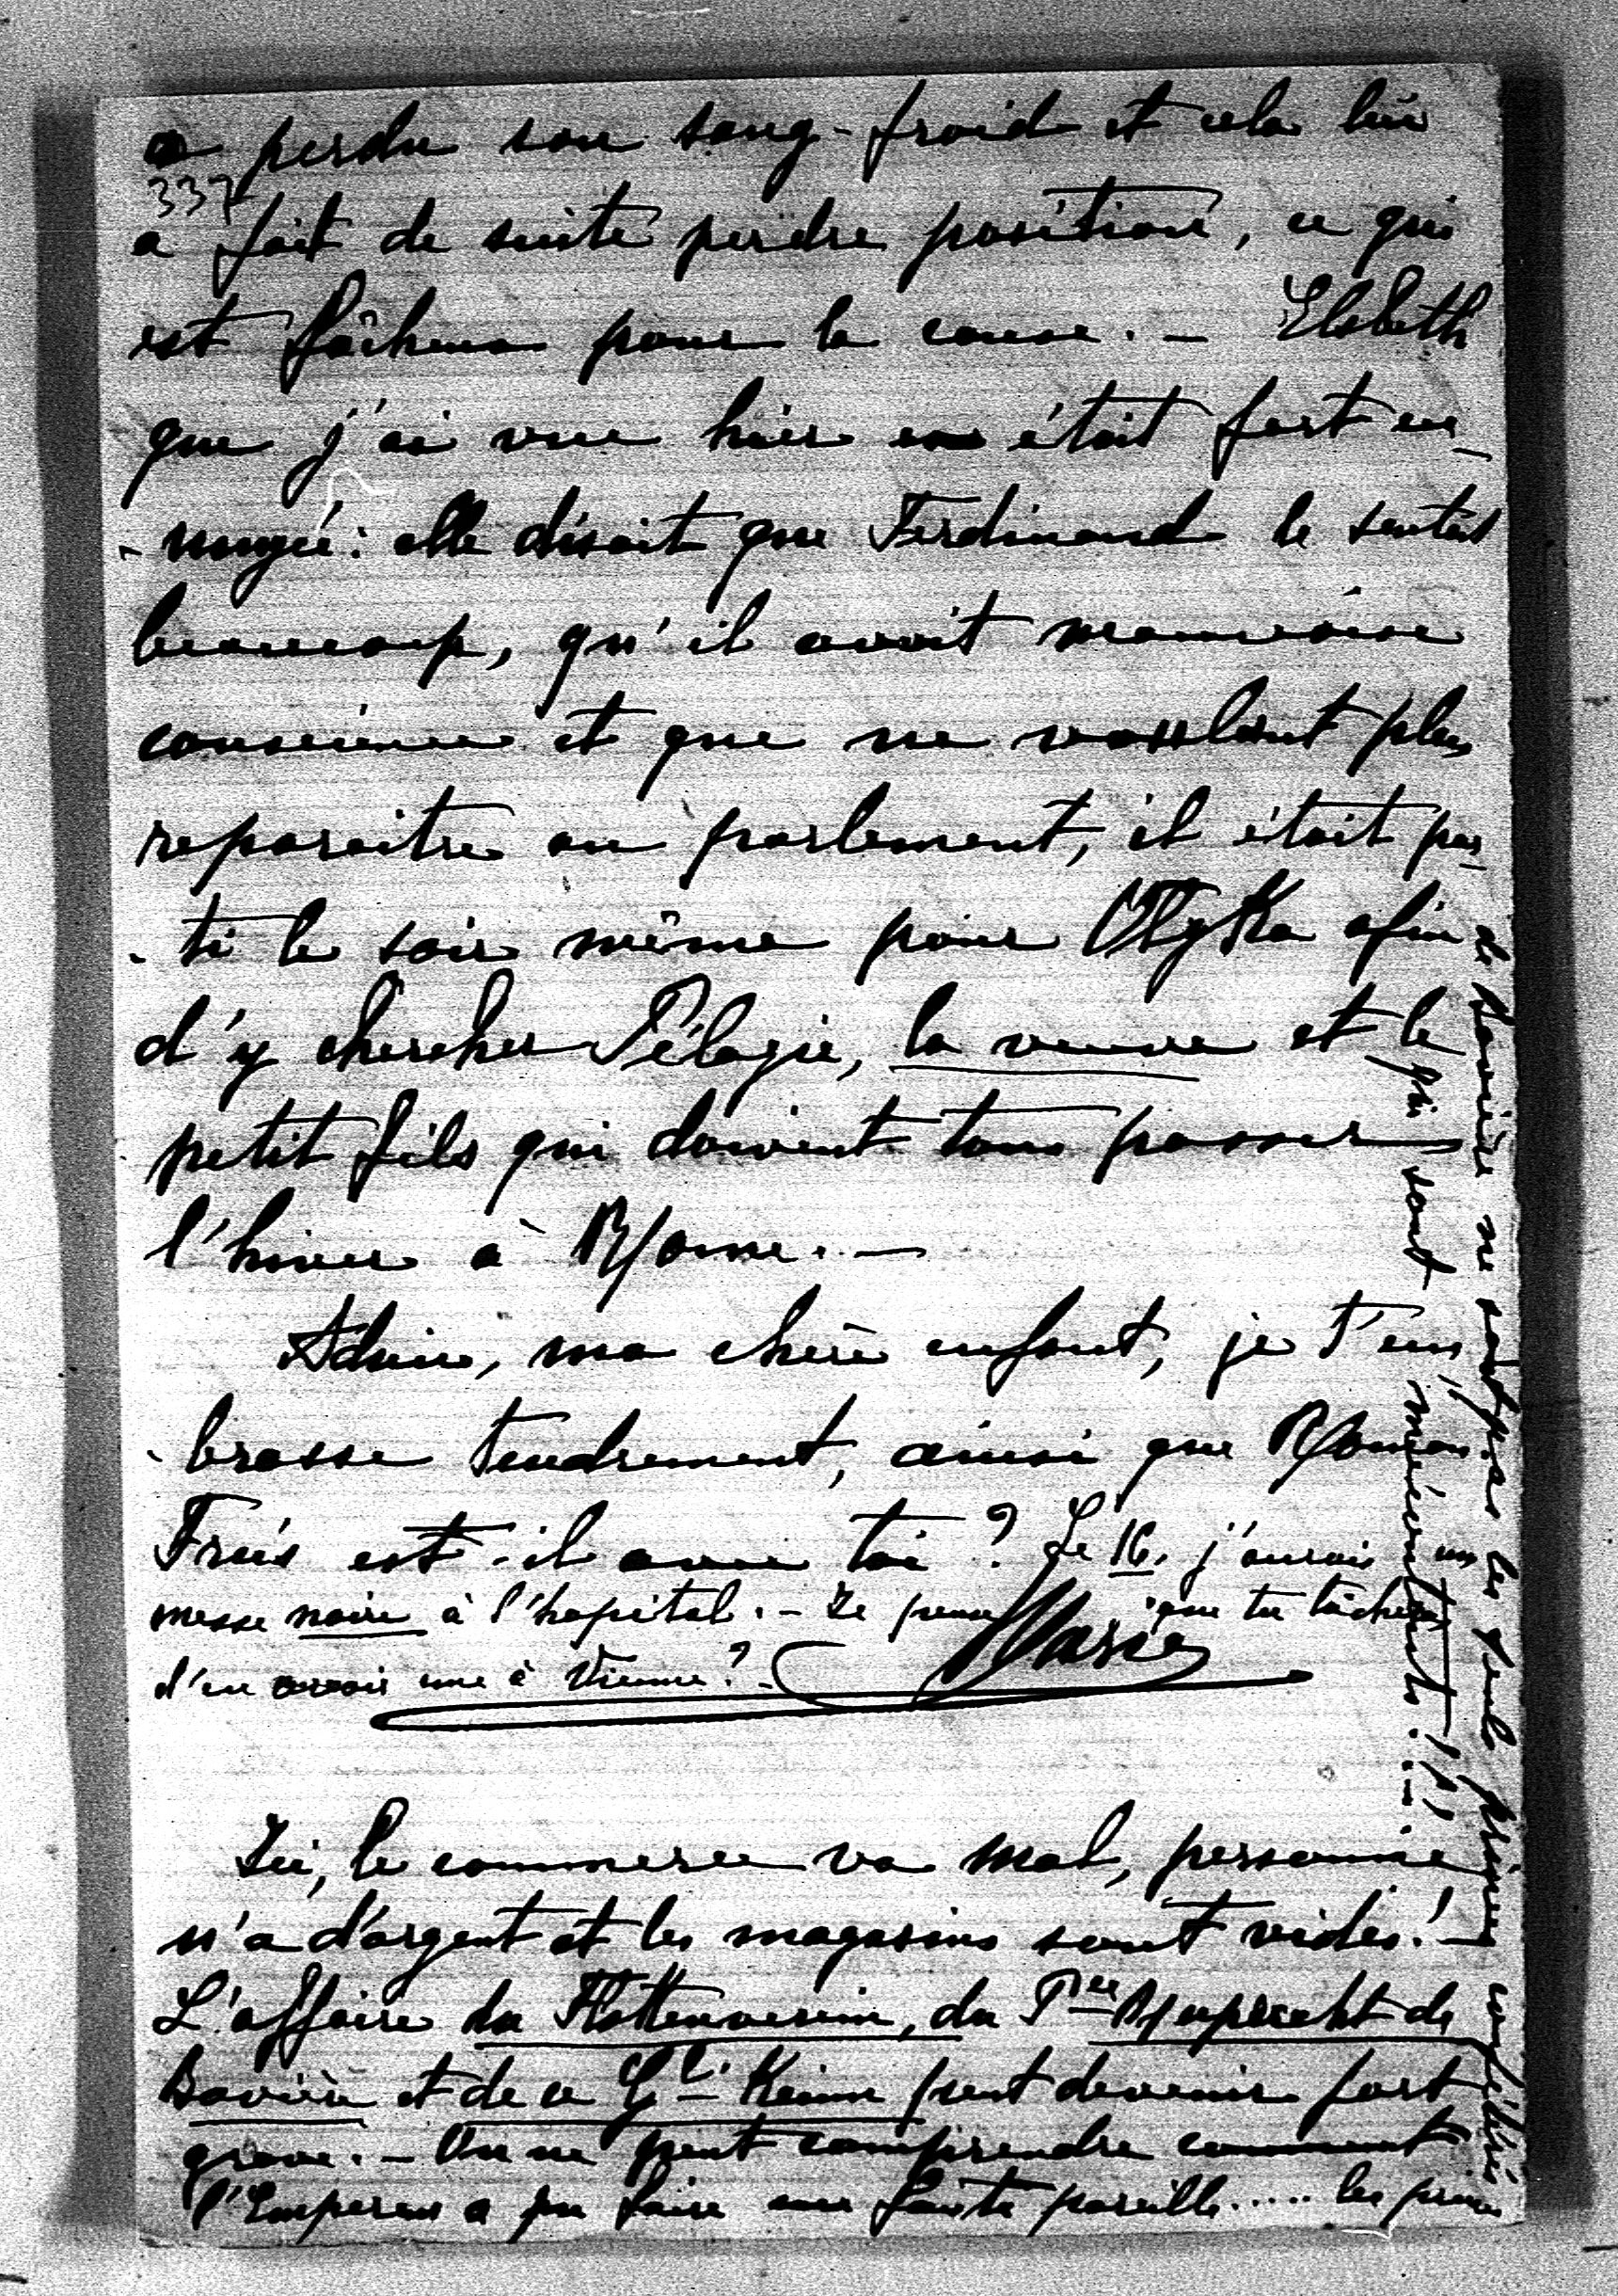 a perdu son sang-froid et cela lui
337
a fait de suite perdre position, ce qui
est fâcheux pour la cause. — Elsbeth
que j'ai vue hier en était fort en-
-nuyée: elle disait que Ferdinand le sentait
beaucoup, qu'il avait mauvaise
conscience et que ne voulant plus
reparaitre au parlement, il était par-
-ti le soir même pour Olyka afin
d'y chercher Pélagie, la veuve et le
petit fils qui doivent tous passer
l'hiver à Rome. —
Adieu, ma chère enfant, je t'em-
-brasse tendrement, ainsi que Roman
est-il avec toi? Le 16, j'aurais une
messe noire à l'hopital. — Je pense que tu tâcheras
d'en avoir une à Vienne? —
Marie
Ici, le commerce va mal, personne
n'a d'argent et les magasins sont vides! —
L'affaire du Flottenverein, du Pce Rupprecht de
Bavière et de ce Gl Keim peut devenir fort
grave. — On ne peut comprendre comment
l'Empereur a pu faire une faute pareille..... les princes
de Bavière ne sont pas les seuls princes
qui sont mécontents!!! —